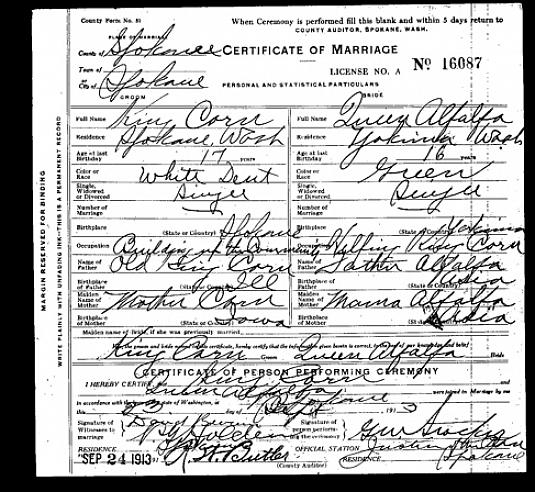 County Form No. 51
When Ceremony is performed fill this blank and within 5 days return to
COUNTY AUDITOR, SPOKANE, WASH.
PLACE OF MARRIAGE
County of Spokane CERTIFICATE OF MARRIAGE
Town of
LICENSE NO. A Nº 16087
City of Spokane PERSONAL AND STATISTICAL PARTICULARS
GROOM BRIDE
Full Name King Corn Full Name Queen Alfalfa
Residence Spokane, Wash Residence Yakima Wash
Age at last Birthday 17 years Age at last Birthday 16 years
Color or Race White Dent Color or Race Green
Single, Widowed or Divorced Single Single, Widowed or Divorced Single
Number of Marriage Number of Marriage
Birthplace (State or Country) Spokane Birthplace (State or Country) Yakima
Occupation Building up the Community Occupation Helping King Corn
Name of Father Old King Corn Name of Father Father Alfalfa
Birthplace of Father (State or Country) Ill Birthplace of Father
Maiden Name of Mother Mother Corn Maiden Name of Mother Mama Alfalfa
Birthplace of Mother (State or Country) Iowa Birthplace of Mother
Maiden name of bride, if she was previously married
King Corn Groom Queen Alfalfa Bride
CERTIFICATE OF PERSON PERFORMING CEREMONY
I HEREBY CERTIFY, King Corn and
Queen Alfalfa were joined in Marriage by me
in accordance with the laws of the State of Washington, at Spokane
this 23 day of Sept 1913
Signature of Witnesses to marriage
Signature of person performing the ceremony
RESIDENCE OFFICIAL STATION
SEP 24 1913 Butler RESIDENCE Spokane
(County Auditor)
MARGIN RESERVED FOR BINDING
WRITE PLAINLY WITH UNFADING INK—THIS IS A PERMANENT RECORD